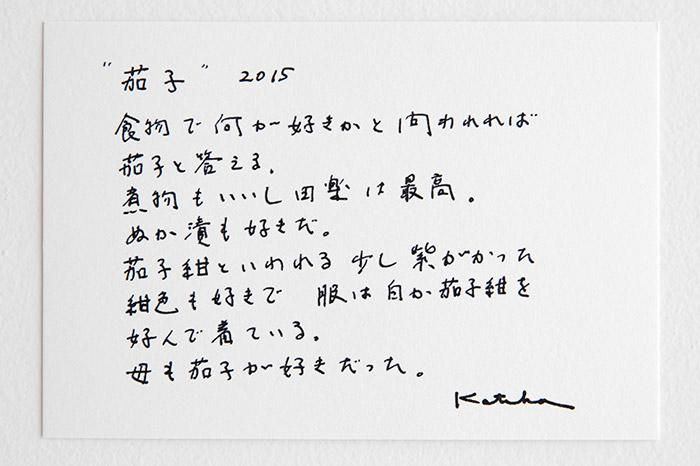 "茄子" 2015
食物で何が好きかと問われれば
茄子と答える.
煮物もいいし田楽は最高。
ぬか漬も好きだ。
茄子紺といわれる少し紫がかった
紺色も好きで 服は白か茄子紺を
好んで着ている。
母も茄子が好きだった。